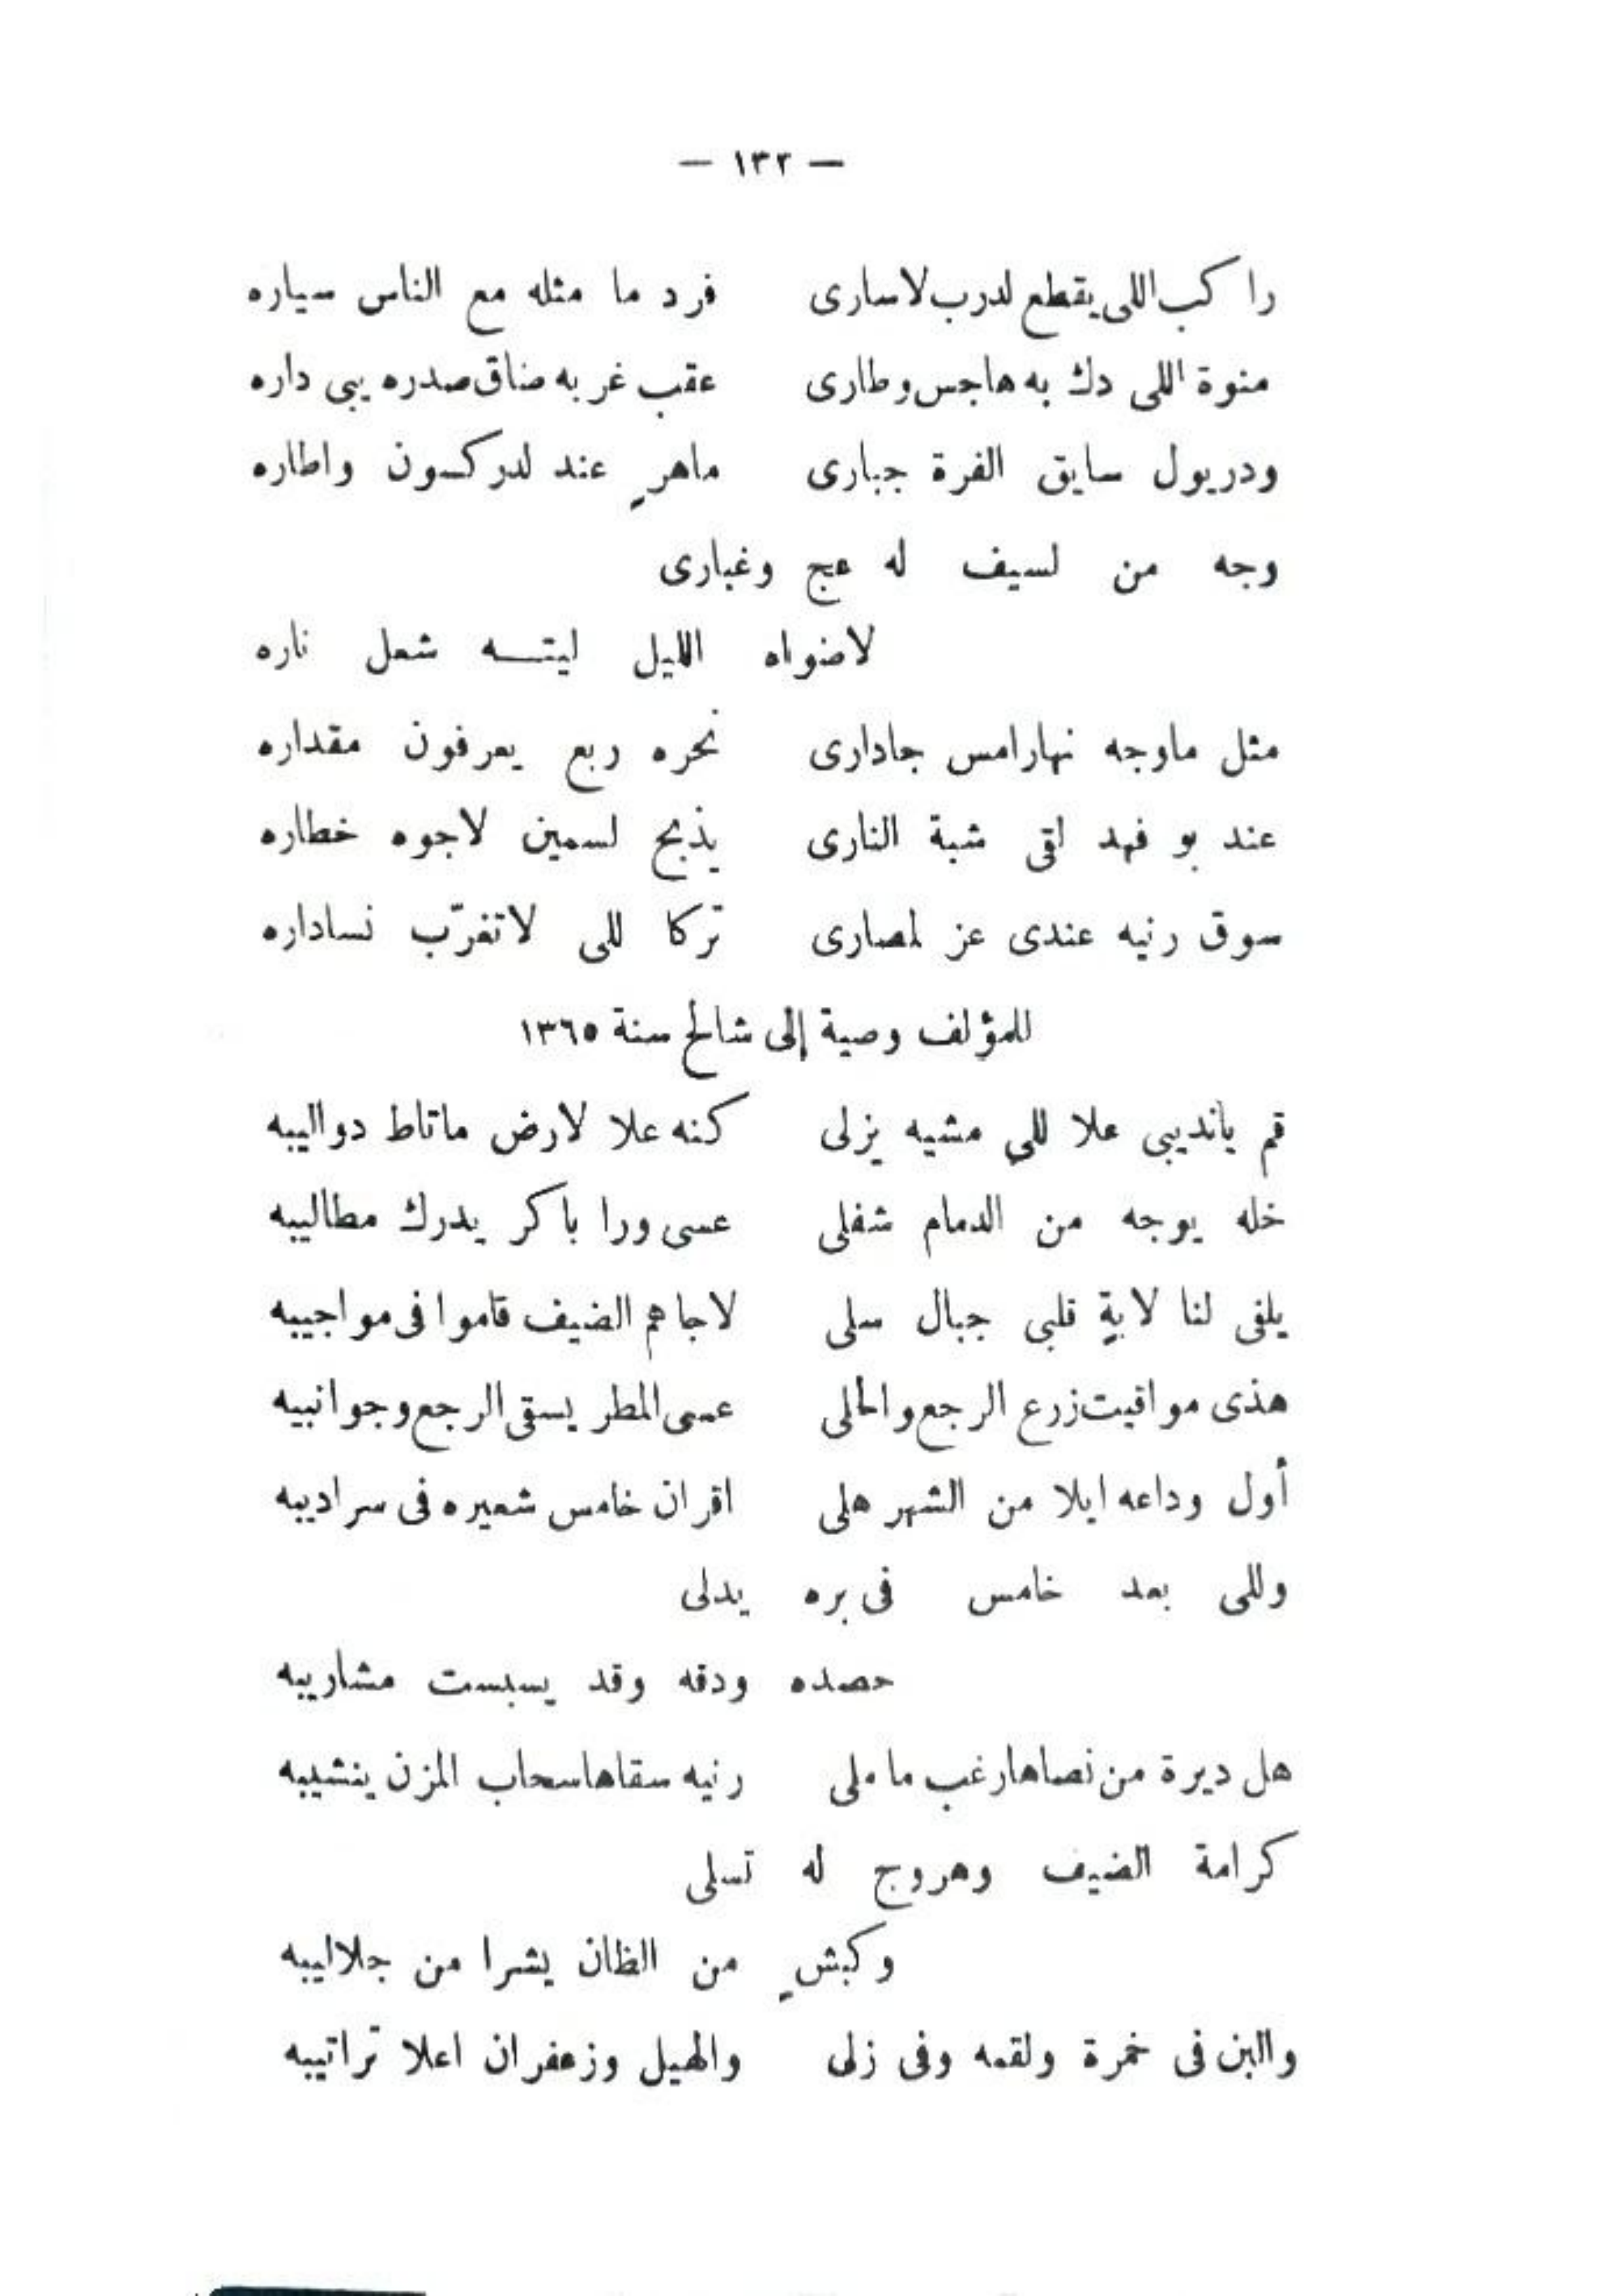 — ١٣٢ —
راكب اللى يقطع لدرب لاسارى فرد ما مثله مع الناس سياره
منوة اللى دك به هاجس وطارى عقب غربه ضاق صدره يبى داره
ودريول سايق الفرة جبارى ماهرٍ عند لدركسون واطاره
وجه من لسيف له عج وغبارى
لاضواه الليل ليتـــه شعل ناره
مثل ماوجه نهار امس جادارى نحره ربع يعرفون مقداره
عند بو فهد اقى شبة النارى يذبح لسمين لاجوه خطاره
سوق رنيه عندى عز لمصارى تركا للى لاتغرّب نساداره
للمؤلف وصية إلى شالح سنة ١٣٦٥
قم يانديبى علا للى مشيه يزلى كنه علا لارض ماتاط دواليبه
خله يوجه من الدمام شفلى عسى ورا باكر يدرك مطاليبه
يلفى لنا لابةٍ قلبى جبال سلى لاجاهم الضيف قاموا فى مواجيبه
هذى مواقيت زرع الرجع والحالى عسى المطر يسقى الرجع وجوانبيه
أول وداعه ايلا من الشهر هلى اقران خامس شعيره فى سراديبه
وللى بعد خامس فى بره يدلى
حصده ودقه وقد يسبست مشاريبه
هل ديرة من نصاها رغب ما ملى رنيه سقاها سحاب المزن ينشيبه
كرامة الضيف وهروج له تسلى
وكبشٍ من الظان يشرا من جلاليبه
والبن فى خمرة ولقمه وفى زلى والهيل وزعفران اعلا تراتيبه